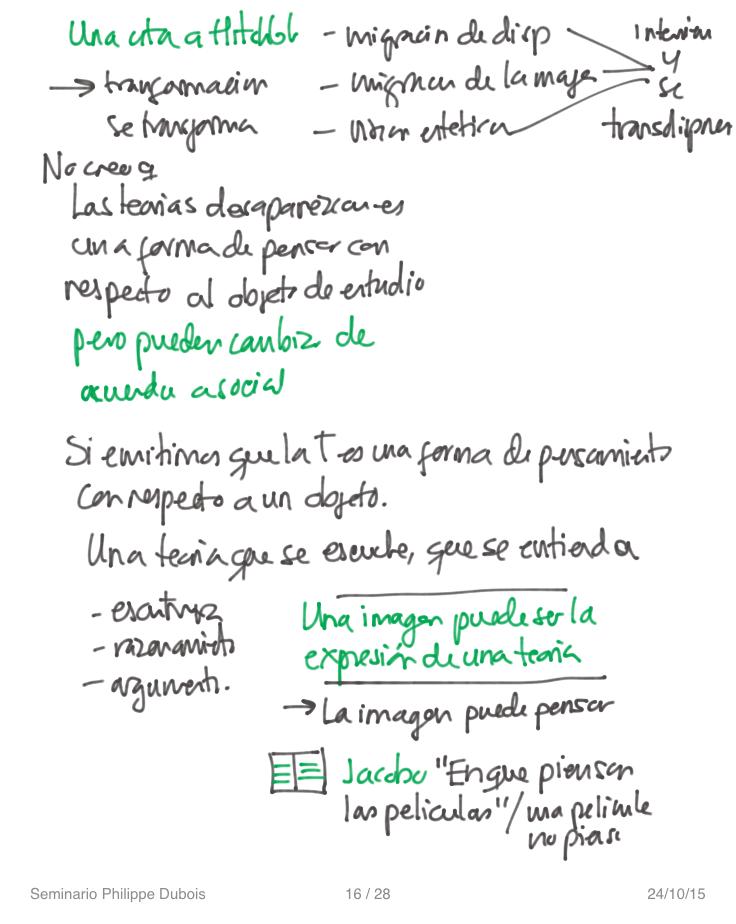 Una cita a Hitchcock - migración de disp
→ transformación - migración de la image
se transforma - visión estética
y
se
No creo q
Las teorías desaparezcan-es
una forma de pensar con
respecto al objeto de estudio
pero pueden cambiar de
acuerdo a social
Si emitimos que la T es una forma de pensamiento
con respecto a un objeto.
Una teoría que se escuche, que se entienda
- escritura
- razonamiento
- argument.
Una imagen puede ser la
expresión de una teoría
→ La imagen puede pensar
Jacobo "En que piensan
las películas" / una película
no piensa
Seminario Philippe Dubois
16 / 28
24/10/15